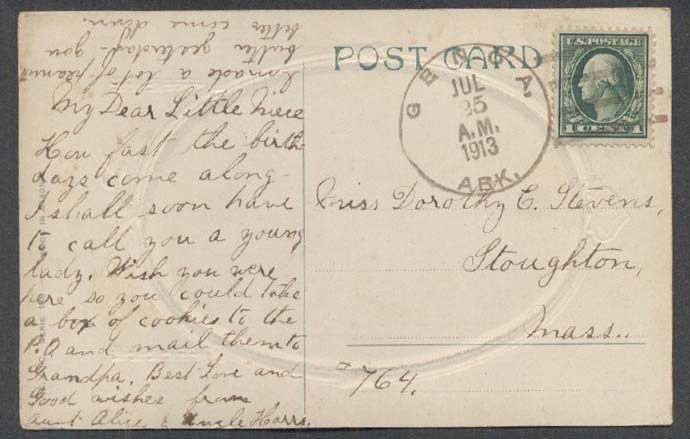 My Dear Little Niece
How fast the birth
days come along
I shall soon have
to call you a young
lady. Wish you were
here so you could take
a box of cookies to the
P.O and mail them to
Grandpa. Best Love and
Good wishes from
Aunt Alice & Uncle Harrs.
I made a lot of peanut
butter yesterday - you
better come down.
POST CARD
GENOA,
JUL
25
A.M.
1913
ARK.
U.S. POSTAGE
1 CENT 1
Miss Dorothy E. Stevens,
Stoughton,
Mass..
#764.